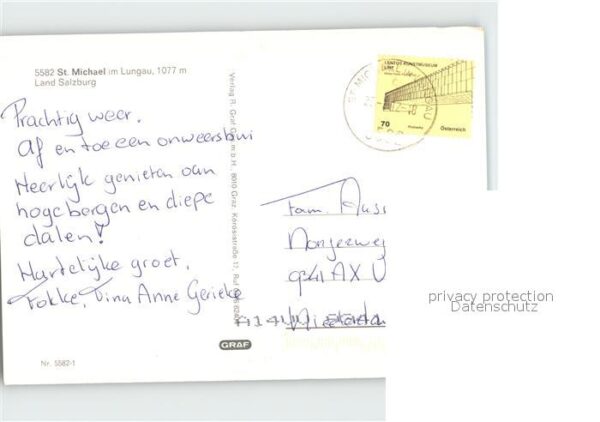 5582 St. Michael im Lungau, 1077 m
Land Salzburg
Prachtig weer.
Af en toe een onweersbui
Heerlijk genieten van
hoge bergen en diepe
dalen!
Hartelijke groet,
Fokke, Tina Anne Gerieke
Nr. 5582-1
Verlag R. Graf m.b.H., 8010 Graz,
GRAF
LENTOS KUNSTMUSEUM
LINZ
70
Österreich
ST. MICH GAU
Fam.
9241 AX
privacy protection
Datenschutz